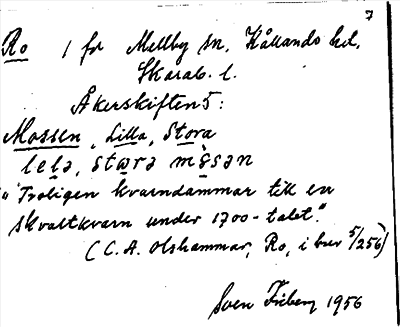 7
Ro 1 fr Mellby sn, Kållands hd,
Skarab. l.
Åkerskiften 5:
Mossen, Lilla, Stora
lela, stωra mɔ̀sən
"Troligen kvarndammar till en
skvaltkvarn under 1700-talet."
(C. A. Olshammar, Ro, i brev 5/2 56)
Sven Friberg 1956